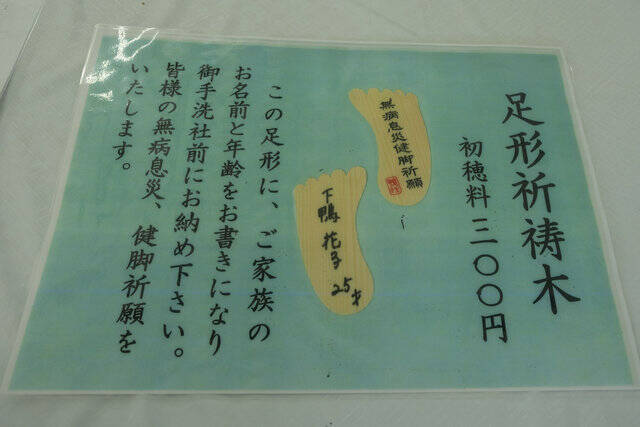 足形祈祷木
初穂料 三〇〇円
無病息災健脚祈願
下鴨 花子 25才
この足形に、ご家族の
お名前と年齢をお書きになり
御手洗社前にお納め下さい。
皆様の無病息災、健脚祈願を
いたします。